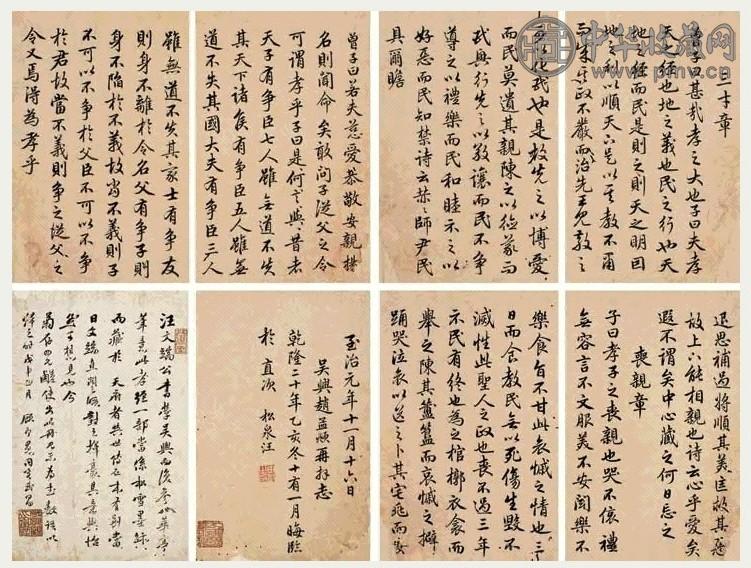 三才章
曾子曰甚哉孝之大也子曰夫孝
天之經也地之義也民之行也天
地之經而民是則之則天之明因
地之利以順天下是以其教不肅
而成其政不嚴而治先王見教之
可以化民也是故先之以博愛
而民莫遺其親陳之以德義而
民興行先之以敬讓而民不爭
導之以禮樂而民和睦示之以
好惡而民知禁詩云赫〻師尹民
具爾瞻
曾子曰若夫慈愛恭敬安親揚
名則聞命矣敢問子從父之令
可謂孝乎子曰是何言與昔者
天子有爭臣七人雖無道不失
其天下諸侯有爭臣五人雖無
道不失其國大夫有爭臣三人
雖無道不失其家士有爭友
則身不離於令名父有爭子則
身不陷於不義故當不義則子
不可以不爭於父臣不可以不爭
於君故當不義則爭之從父之
令又焉得為孝乎
退思補過將順其美匡救其惡
故上下能相親也詩云心乎愛矣
遐不謂矣中心藏之何日忘之
喪親章
子曰孝子之喪親也哭不偯禮
無容言不文服美不安聞樂不
樂食旨不甘此哀慼之情也三
日而食教民無以死傷生毀不
滅性此聖人之政也喪不過三年
示民有終也為之棺槨衣衾而
舉之陳其簠簋而哀慼之擗
踊哭泣哀以送之卜其宅兆而安
至治元年十一月十六日
吳興趙孟頫再拜志
乾隆二十年乙亥冬十有一月晦臨
於直次 松泉汪
汪文端公書學吳興
筆意此孝經一部當係松雪墨跡
而藏於天府者
中华收藏网